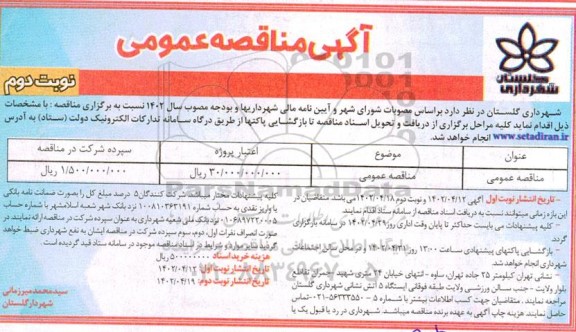 آگهی مناقصه عمومی
نوبت دوم
گلستان
شهرداری
شهرداری گلستان در نظر دارد براساس مصوبات شورای شهر و آیین نامه مالی شهرداریها و بودجه مصوب سال ۱۴۰۲ نسبت به برگزاری مناقصه : با مشخصات
ذیل اقدام نماید کلیه مراحل برگزاری از دریافت و تحویل اسناد مناقصه تا بازگشایی پاکتها از طریق درگاه سامانه تدارکات الکترونیک دولت (ستاد) به آدرس
www.setadiran.ir انجام خواهد شد.
عنوان موضوع اعتبار پروژه سپرده شرکت در مناقصه
مناقصه عمومی مناقصه عمومی ۳۰/۰۰۰/۰۰۰/۰۰۰ ریال ۱/۵۰۰/۰۰۰/۰۰۰ ریال
- تاریخ انتشار نوبت اول آگهی ۱۴۰۲/۰۴/۱۲ و نوبت دوم ۱۴۰۲/۰۴/۱۸ می باشد متقاضیان در
این بازه زمانی میتوانند نسبت به دریافت اسناد مناقصه از سامانه ستاد اقدام نمایند.
- کلیه پیشنهادات می بایست حداکثر تا پایان وقت اداری روز ۱۴۰۲/۰۴/۲۹ در سامانه بارگزاری
گردد.
- بازگشایی پاکتهای پیشنهادی ساعت ۱۳:۰۰ روز ۱۴۰۲/۰۴/۳۱ در محل سالن اجتماعات
شهرداری انجام خواهد شد.
- نشانی تهران کیلومتر ۲۵ جاده تهران ساوه - انتهای خیابان ۲۴ متری شهید
بلوار ولایت - جنب سالن ورزشی ولایت طبقه فوقانی ایستگاه ۵ آتش نشانی شهرداری گلستان
مراجعه نمایند. متقاضیان جهت کسب اطلاعات بیشتر با شماره ۵ - ۰۲۱-۵۶۳۳۳۵۵۰ تماس
حاصل نمایند. هزینه چاپ آگهی به عهده برنده مناقصه میباشد. شهرداری در رد یا قبول یک یا
کلیه پیشنهادات مختار است. شرکت کنندگان ۵ درصد مبلغ کل را بصورت ضمانت نامه بانکی
یا واریز نقدی به حساب شماره ۱۰۰۸۱۰۳۶۳۱۹۱ نزد بانک شهر شعبه اسلامشهر یا شماره حساب
نزد بانک ملی شعبه شهرداری به عنوان سپرده شرکت در مناقصه ارائه نمایند. در
صورت انصراف نفرات اول، دوم، سوم سپرده شرکت در مناقصه ایشان به نفع شهرداری ضبط خواهد
گردید. سایر موارد و شرایط در اسناد مناقصه موجود در سامانه ستاد قید گردیده است.
هزینه خرید اسناد ریال
تاریخ انتشار نوبت اول: ۱۴۰۲/۰۴/۱۲
تاریخ انتشار نوبت دوم: ۱۴۰۲/۰۴/۱۹
سیدمحمدمیرزمانی
شهردار گلستان
ParsNamadData